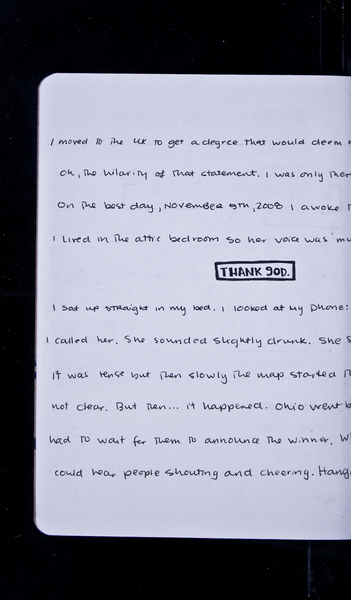 I moved to the UK to get a degree that would deem
Oh, the hilarity of that statement. I was only
On the best day, November 5th, 2008 I awoke
I lived in the attic bedroom so her voice was
THANK GOD.
I sat up straight in my bed. I looked at my phone:
I called her. She sounded slightly drunk. She
It was tense but then slowly the map started
not clear. But then... it happened. Ohio went
had to wait for them to announce the winner.
could hear people shouting and cheering.